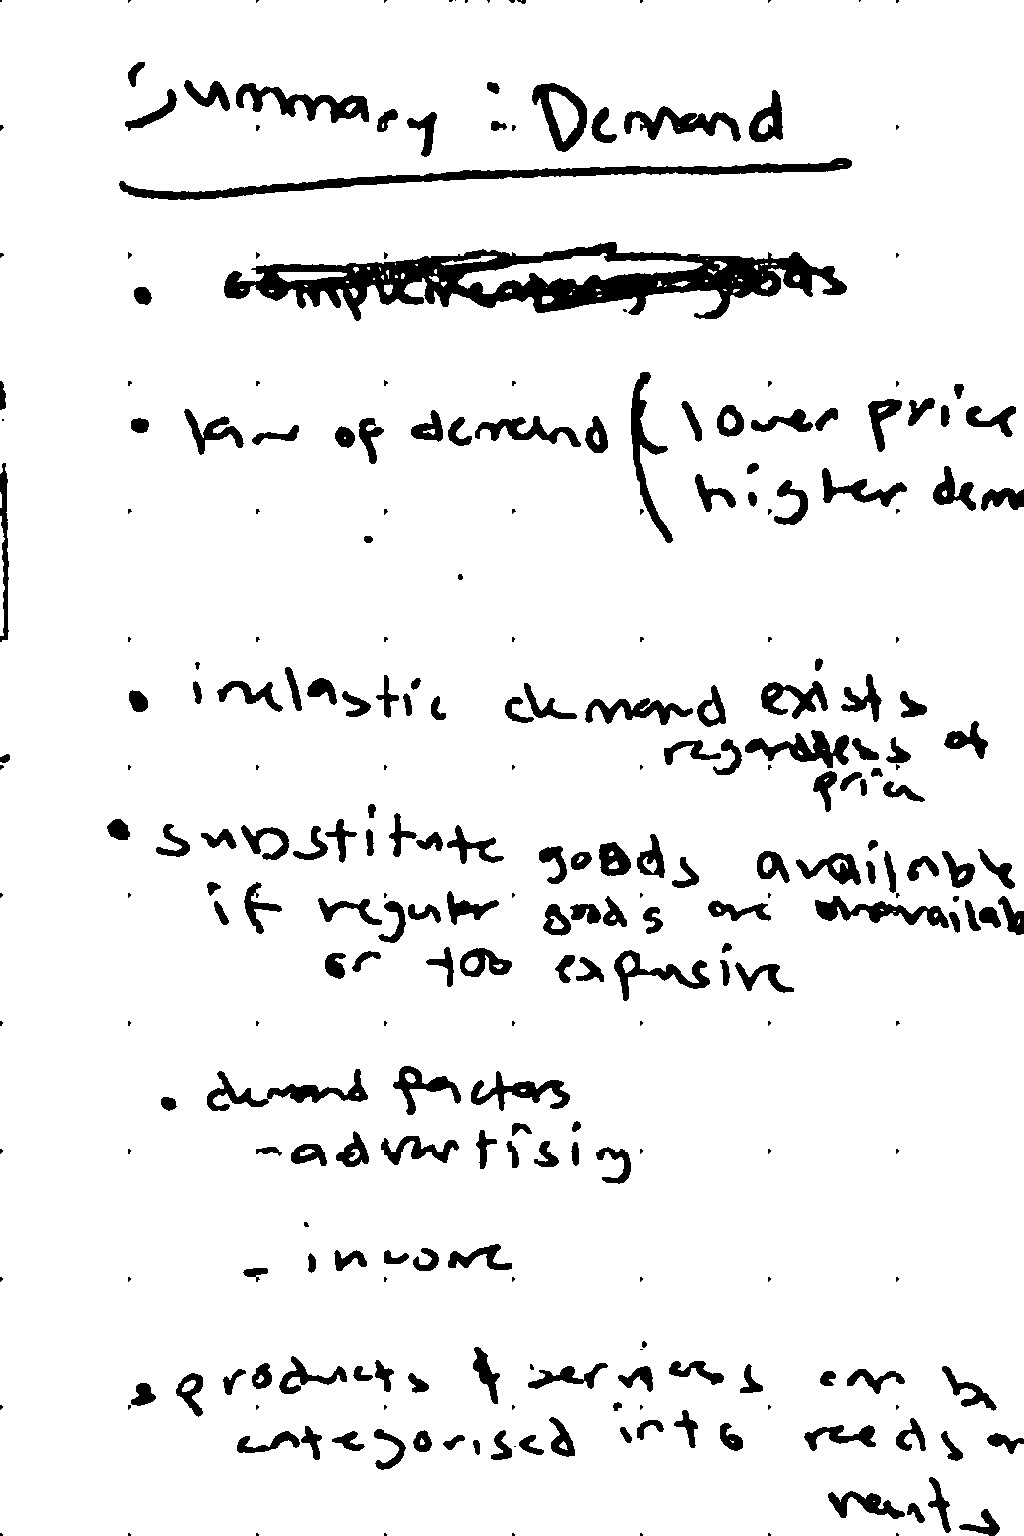 Summary : Demand
• complementary goods
• law of demand ( lower price
higher dem
• inelastic demand exists
regardless of
price
• substitute goods available
if regular goods are unavailab
or too expensive
• demand factors
- advertising
- income
• products & services can be
categorised into needs or
wants